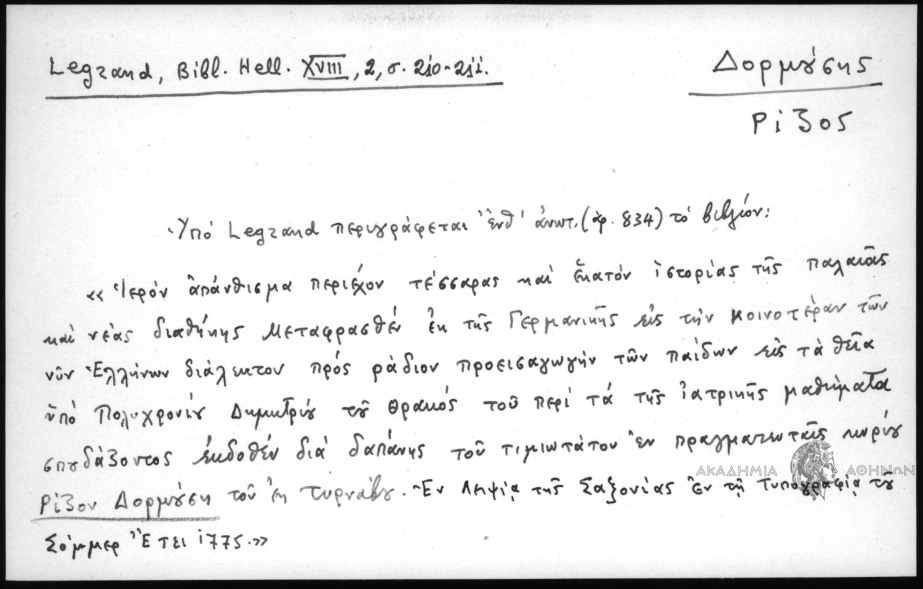 Legrand, Bibl. Hell. XVIII, 2, σ. 210-211.
Δορμούσης
Ρίζος
Ὑπό Legrand περιγράφεται ἔνθ' ἀνωτ. (ἀρ. 834) τό βιβλίον:
« Ἱερόν ἀπάνθισμα περιέχον τέσσαρας καί ἑκατόν ἱστορίας τῆς παλαιᾶς
καί νέας διαθήκης μεταφρασθέν ἐκ τῆς Γερμανικῆς εἰς τήν κοινοτέραν τῶν
νῦν Ἑλλήνων διάλεκτον πρός ράδιον προεισαγωγήν τῶν παίδων εἰς τά θεῖα
ὑπό Πολυχρονίου Δημητρίου τοῦ Θρακός τοῦ περί τά τῆς ἰατρικῆς μαθήματα
σπουδάζοντος ἐκδοθέν διά δαπάνης τοῦ τιμιωτάτου ἐν πραγματευταῖς κυρίου
ΑΚΑΔΗΜΙΑ ΑΘΗΝΩΝ
Ρίζου Δορμούση τοῦ ἐκ Τυρνάβου. Ἐν Λειψίᾳ τῆς Σαξονίας Ἐν τῇ Τυπογραφίᾳ τοῦ
Σόμμερ Ἔτει 1775.»